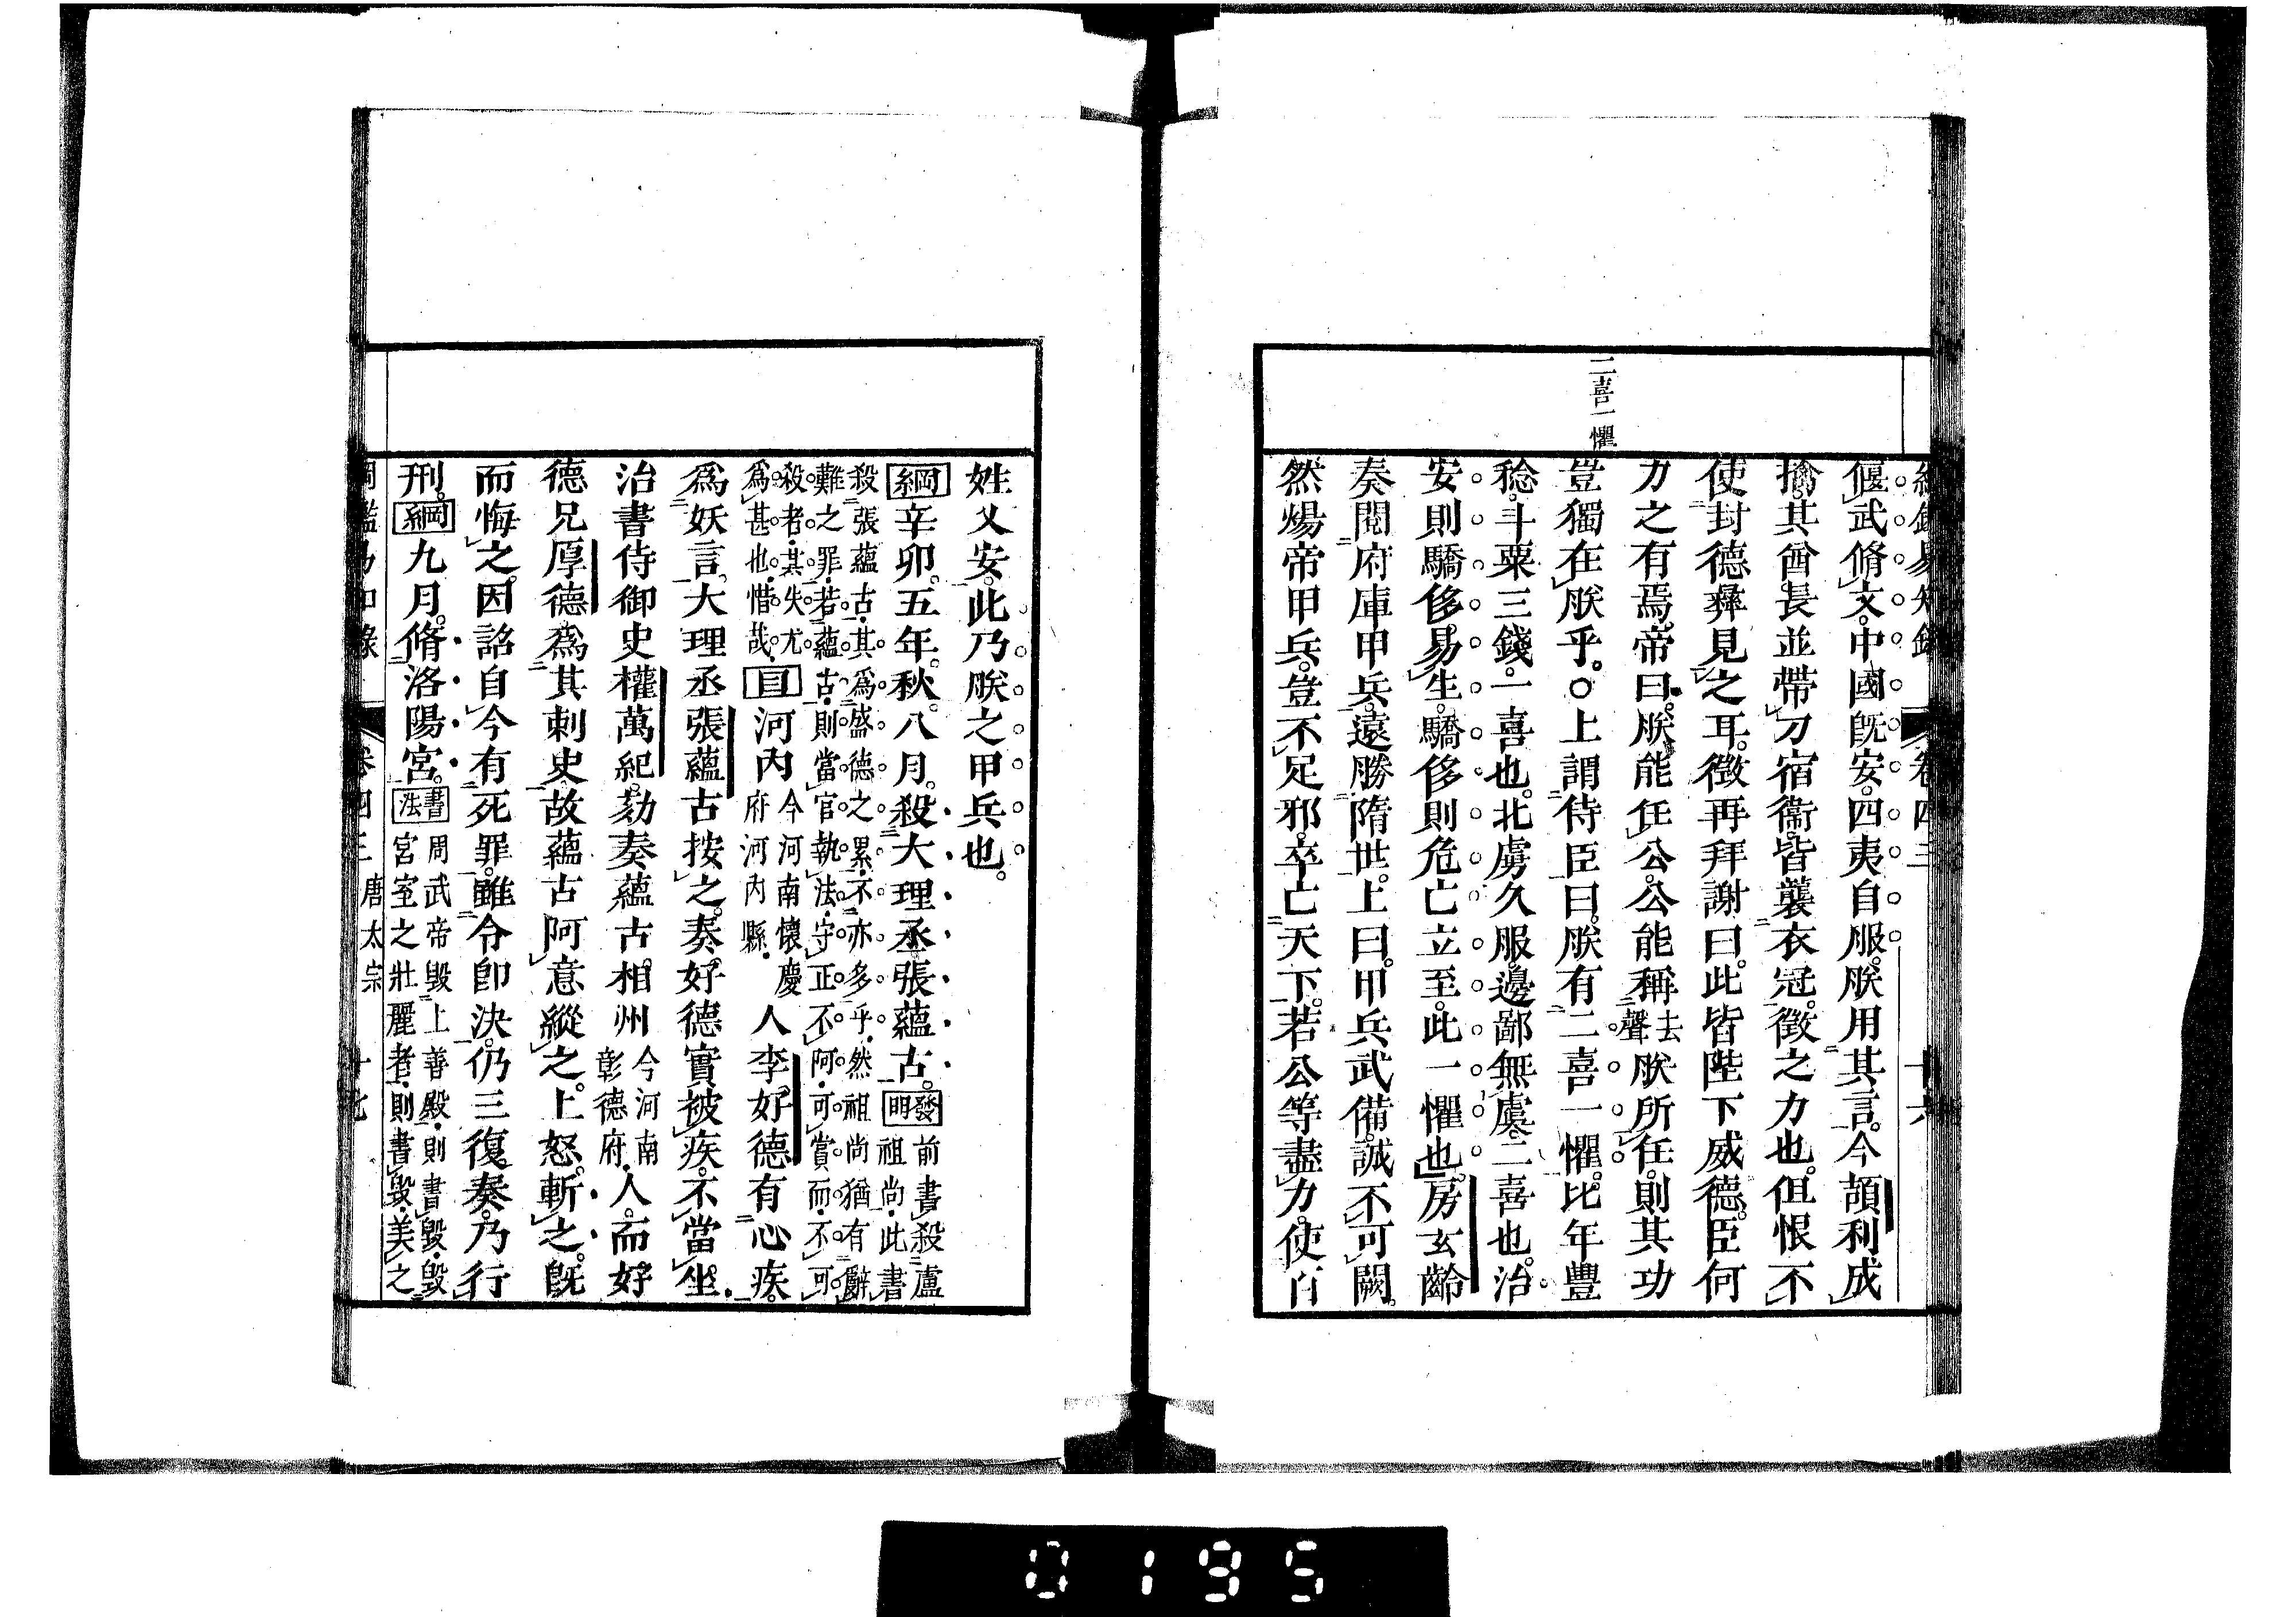 二喜一懼
偃武脩文。中國旣安。四夷自服。朕用其言。今頡利成
擒。其酋長並帶刀宿衞。皆襲衣冠。徵之力也。但恨不
使封德彝見之耳。徵再拜謝曰。此皆陛下威德。臣何
力之有焉。帝曰。朕能任公。公能稱去聲朕所任。則其功
豈獨在朕乎。○上謂侍臣曰。朕有二喜一懼。比年豐
稔。斗粟三錢。一喜也。北虜久服。邊鄙無虞。二喜也。治
安則驕侈易生。驕侈則危亡立至。此一懼也。房玄齡
奏閱府庫甲兵。遠勝隋世。上曰。甲兵武備。誠不可闕。
然煬帝甲兵。豈不足邪。卒亡天下。若公等盡力。使百
卷四三
十六
姓乂安。此乃朕之甲兵也。
綱辛卯。五年。秋。八月。殺大理丞張蘊古。發明前書殺盧祖尚。此書
殺張蘊古。其爲盛德之累。不亦多乎。然祖尚猶有辭
難之罪。若蘊古。則當官執法。守正不阿。可賞而不可
殺者。其失尤爲甚也。惜哉。目河內今河南懷慶府河內縣。人李好德有心疾。
爲妖言。大理丞張蘊古按之。奏好德實被疾。不當坐。
治書侍御史權萬紀。劾奏蘊古。相州今河南彰德府。人。而好
德兄厚德爲其刺史。故蘊古阿意縱之。上怒。斬之。旣
而悔之。因詔自今有死罪。雖令卽決。仍三復奏。乃行
刑。綱九月。脩洛陽宮。書法周武帝毀上善殿。則書毀。毀
宮室之壯麗者。則書毀。美之
唐太宗
十七
0195